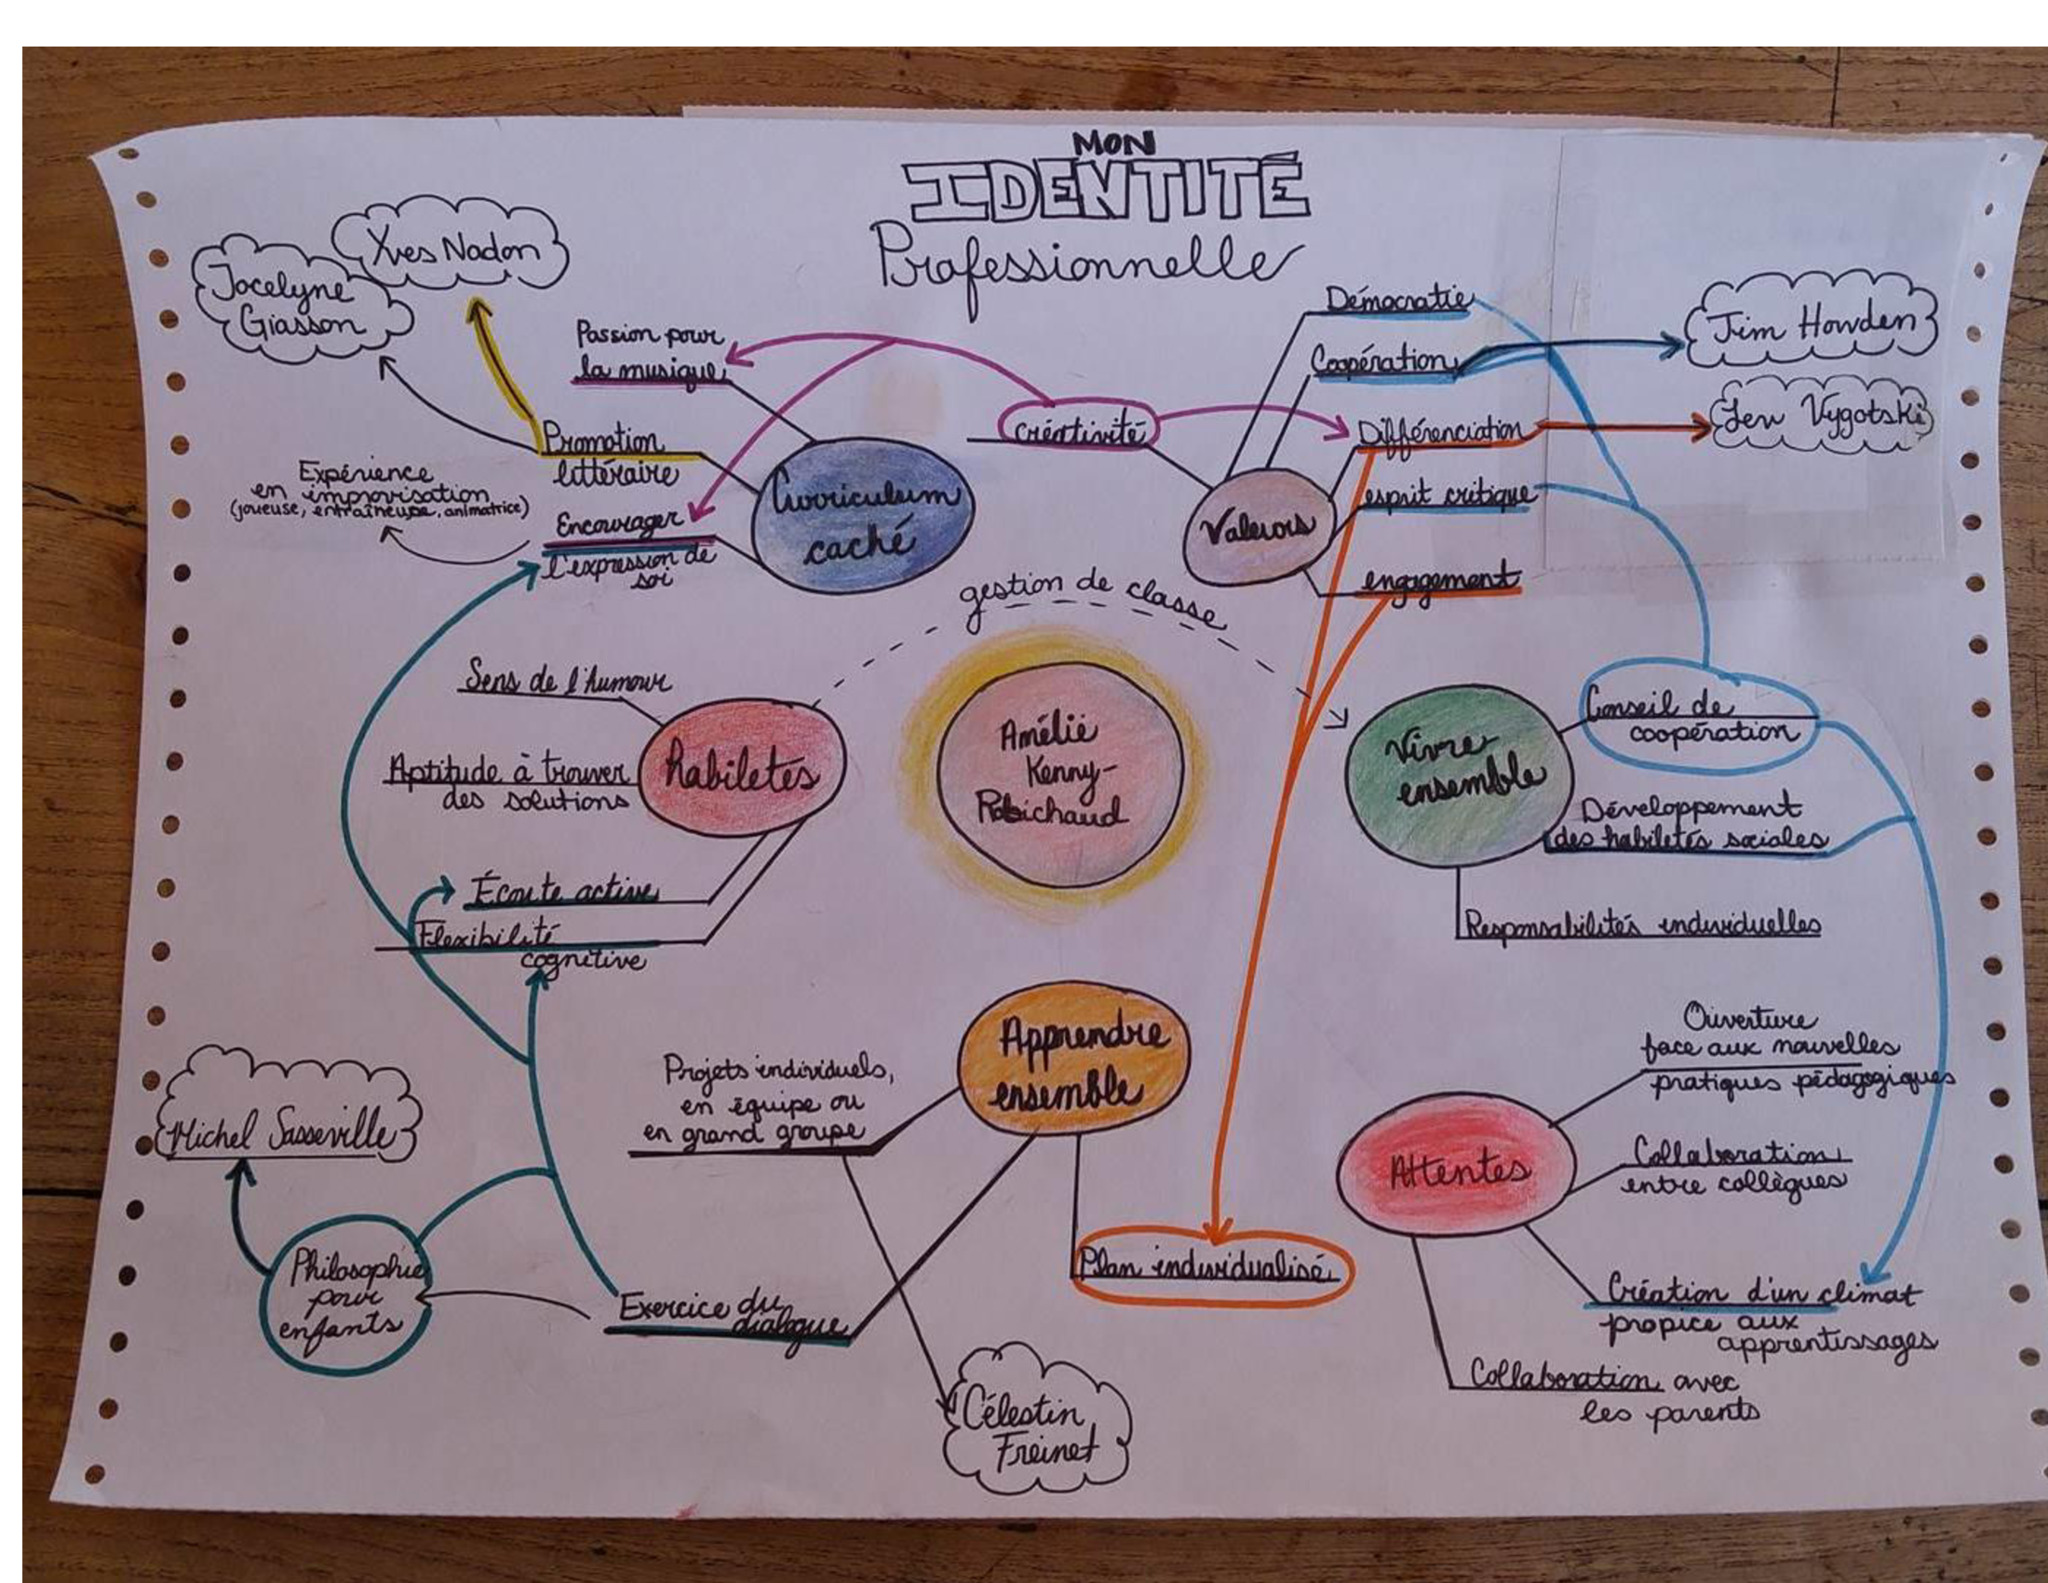 MON
IDENTITÉ
Professionnelle
Yves Nadon
Jocelyne
Giasson
Passion pour
la musique
Promotion
littéraire
Expérience
en improvisation
(joueuse, entraîneuse, animatrice)
Encourager
l'expression de
soi
Curriculum
caché
créativité
Valeurs
Démocratie
Coopération
Différenciation
esprit critique
engagement
Jim Howden
Lev Vygotski
gestion de classe
Sens de l'humour
Aptitude à trouver
des solutions
habiletés
Écoute active
Flexibilité
cognitive
Amélie
Kenny-
Robichaud
Vivre
ensemble
Conseil de
coopération
Développement
des habiletés sociales
Responsabilités individuelles
Apprendre
ensemble
Projets individuels,
en équipe ou
en grand groupe
Michel Sasseville
Philosophie
pour
enfants
Exercice du
dialogue
Plan individualisé
Célestin
Freinet
Attentes
Ouverture
face aux nouvelles
pratiques pédagogiques
Collaboration
entre collègues
Création d'un climat
propice aux
apprentissages
Collaboration avec
les parents